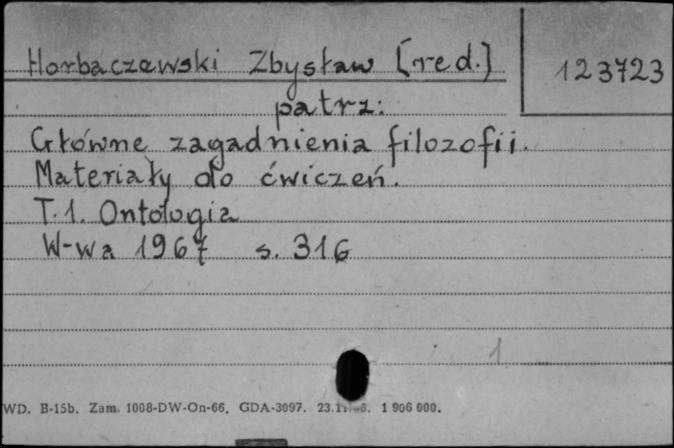 Horbaczewski Zbysław [red.] 123723
patrz:
Główne zagadnienia filozofii.
Materiały do ćwiczeń.
T.1. Ontologia
W-wa 1967 s. 316
1
WD. B-15b. Zam. 1008-DW-On-66. GDA-3097. 1 906 000.